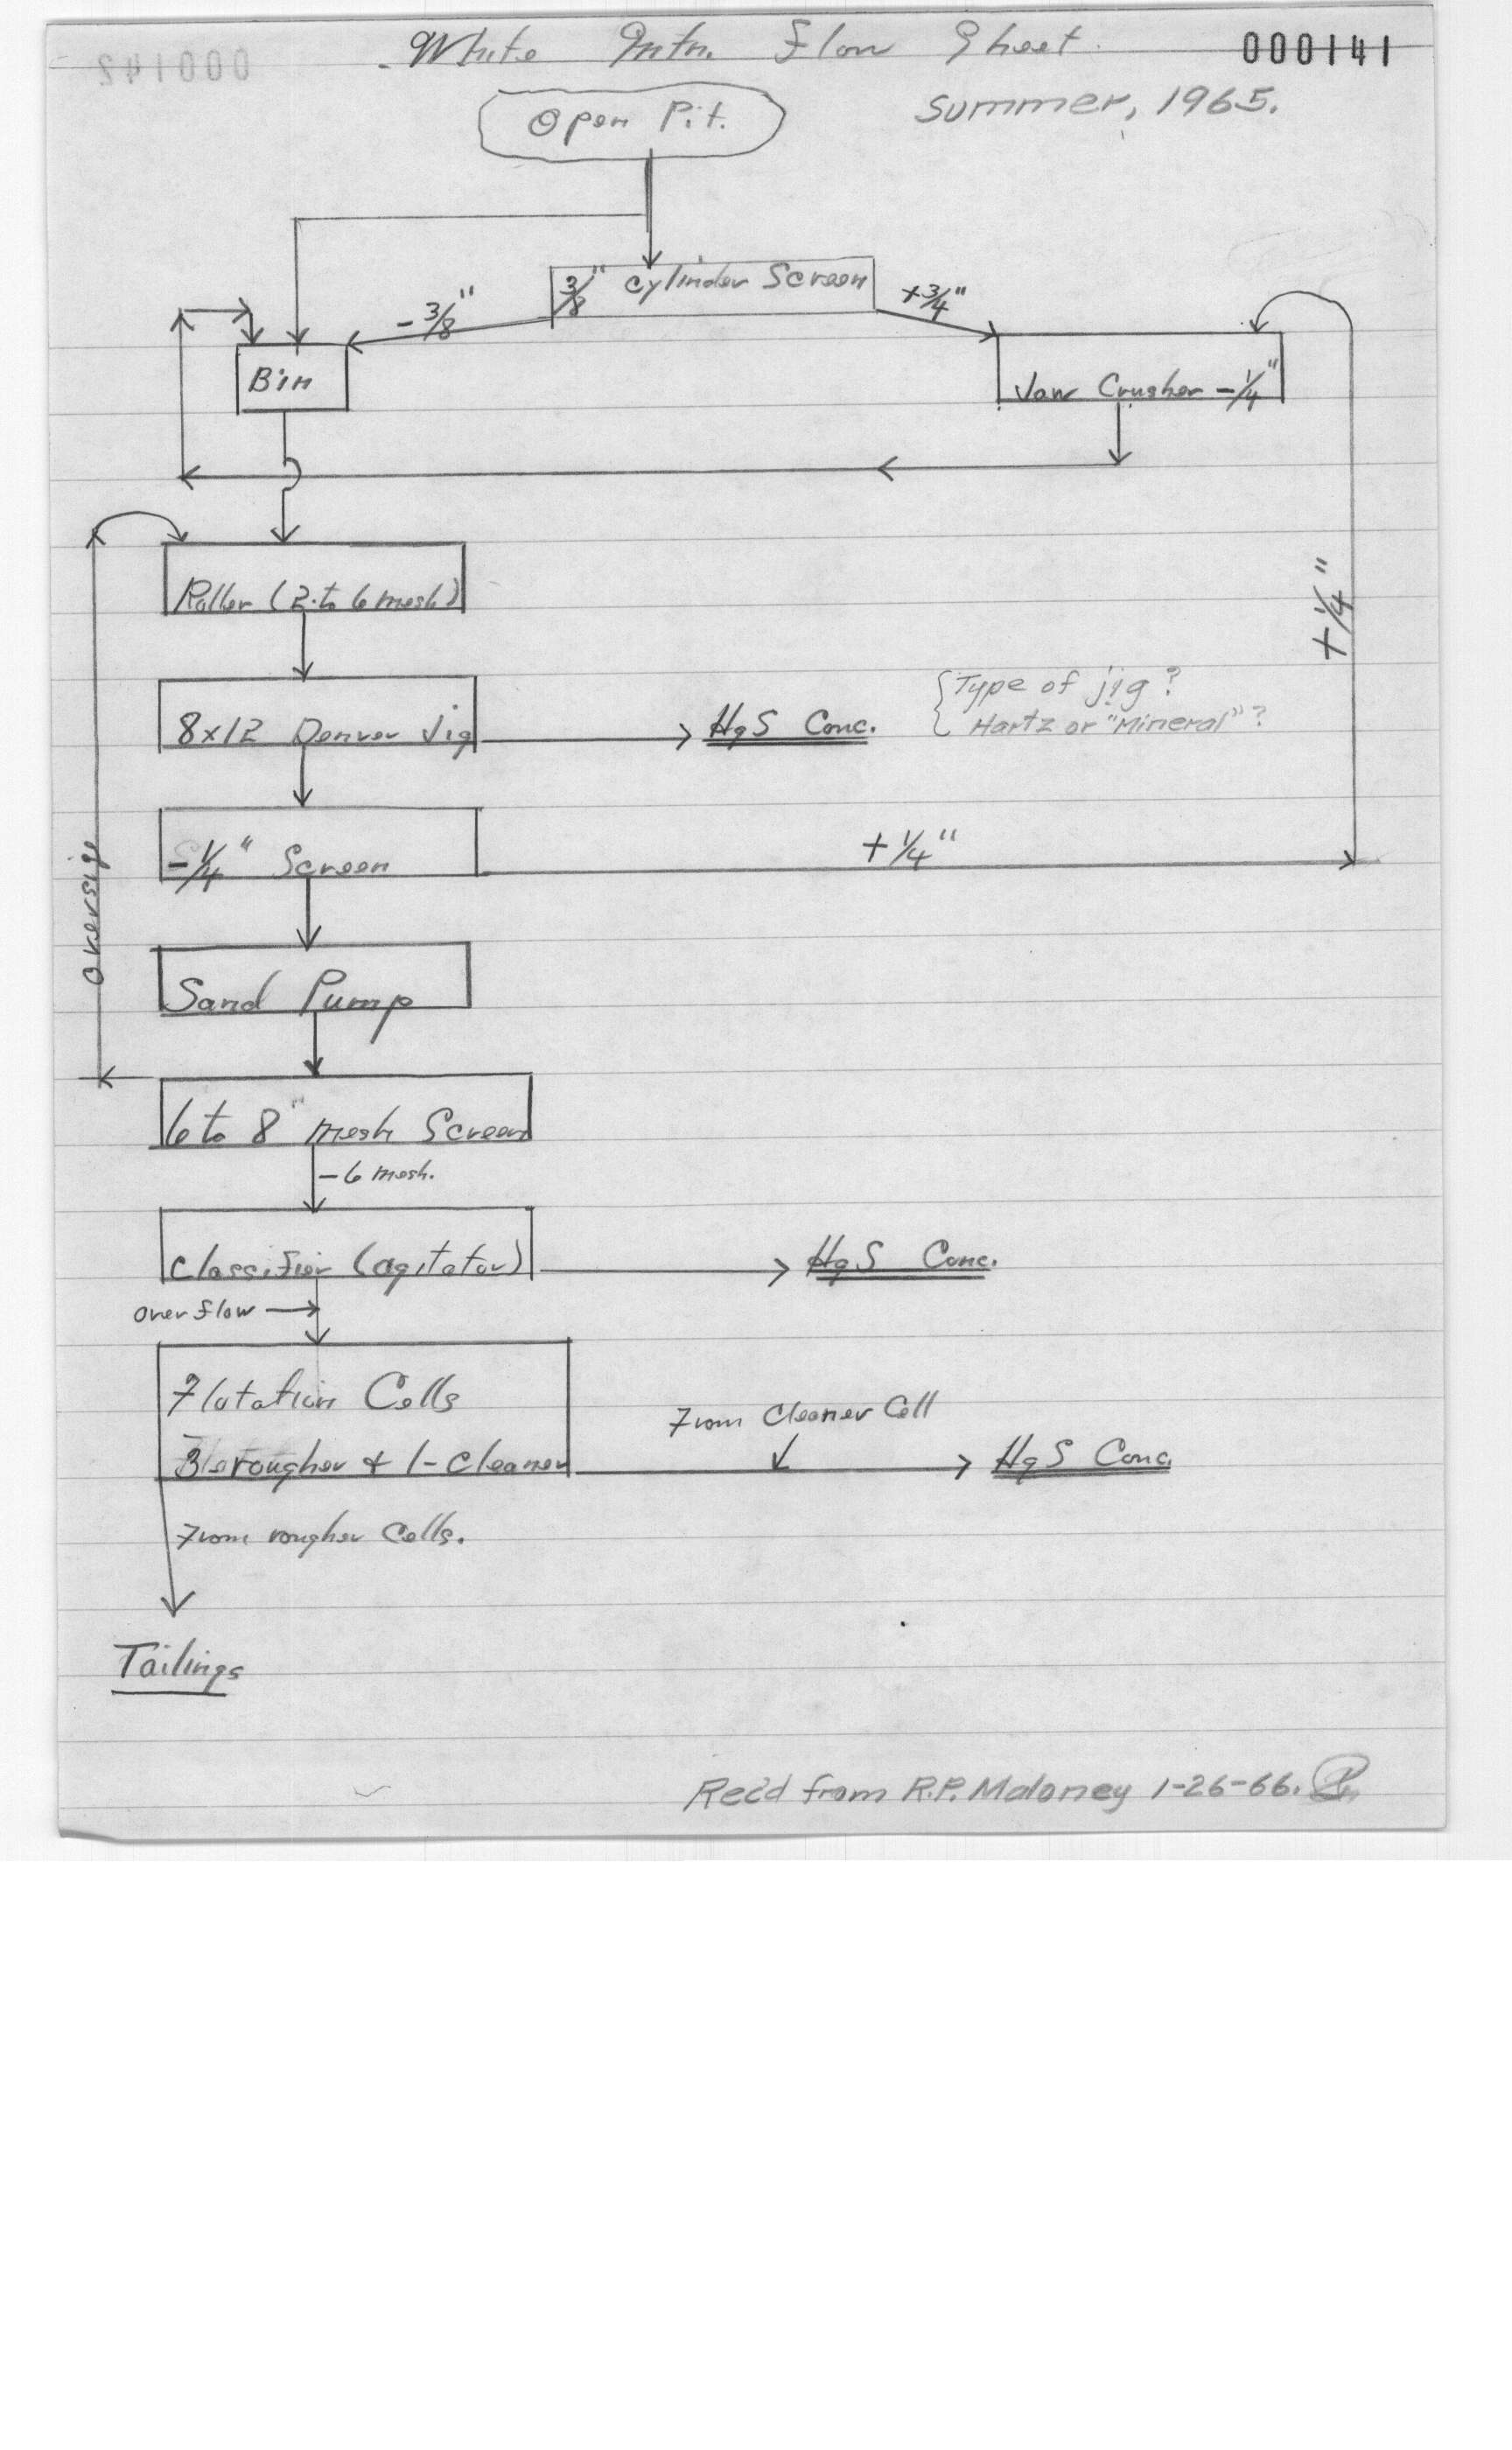 White Mtn. Flow Sheet.
000141
000142
Summer, 1965.
Open Pit.
3/8" Cylinder Screen
- 3/8"
+3/4"
Bin
Jaw Crusher -1/4"
Roller (2 to 6 mesh)
+1/4"
8x12 Denver Jig
HgS Conc.
Type of jig?
Hartz or "Mineral"?
-1/4" Screen
+1/4"
oversize
Sand Pump
6 to 8" mesh Screen
-6 mesh.
Classifier (agitator)
HgS Conc.
overflow
Flotation Cells
3 rougher + 1-Cleaner
From Cleaner Cell
HgS Conc.
From rougher Cells.
Tailings
Rec'd from R.P. Maloney 1-26-66.